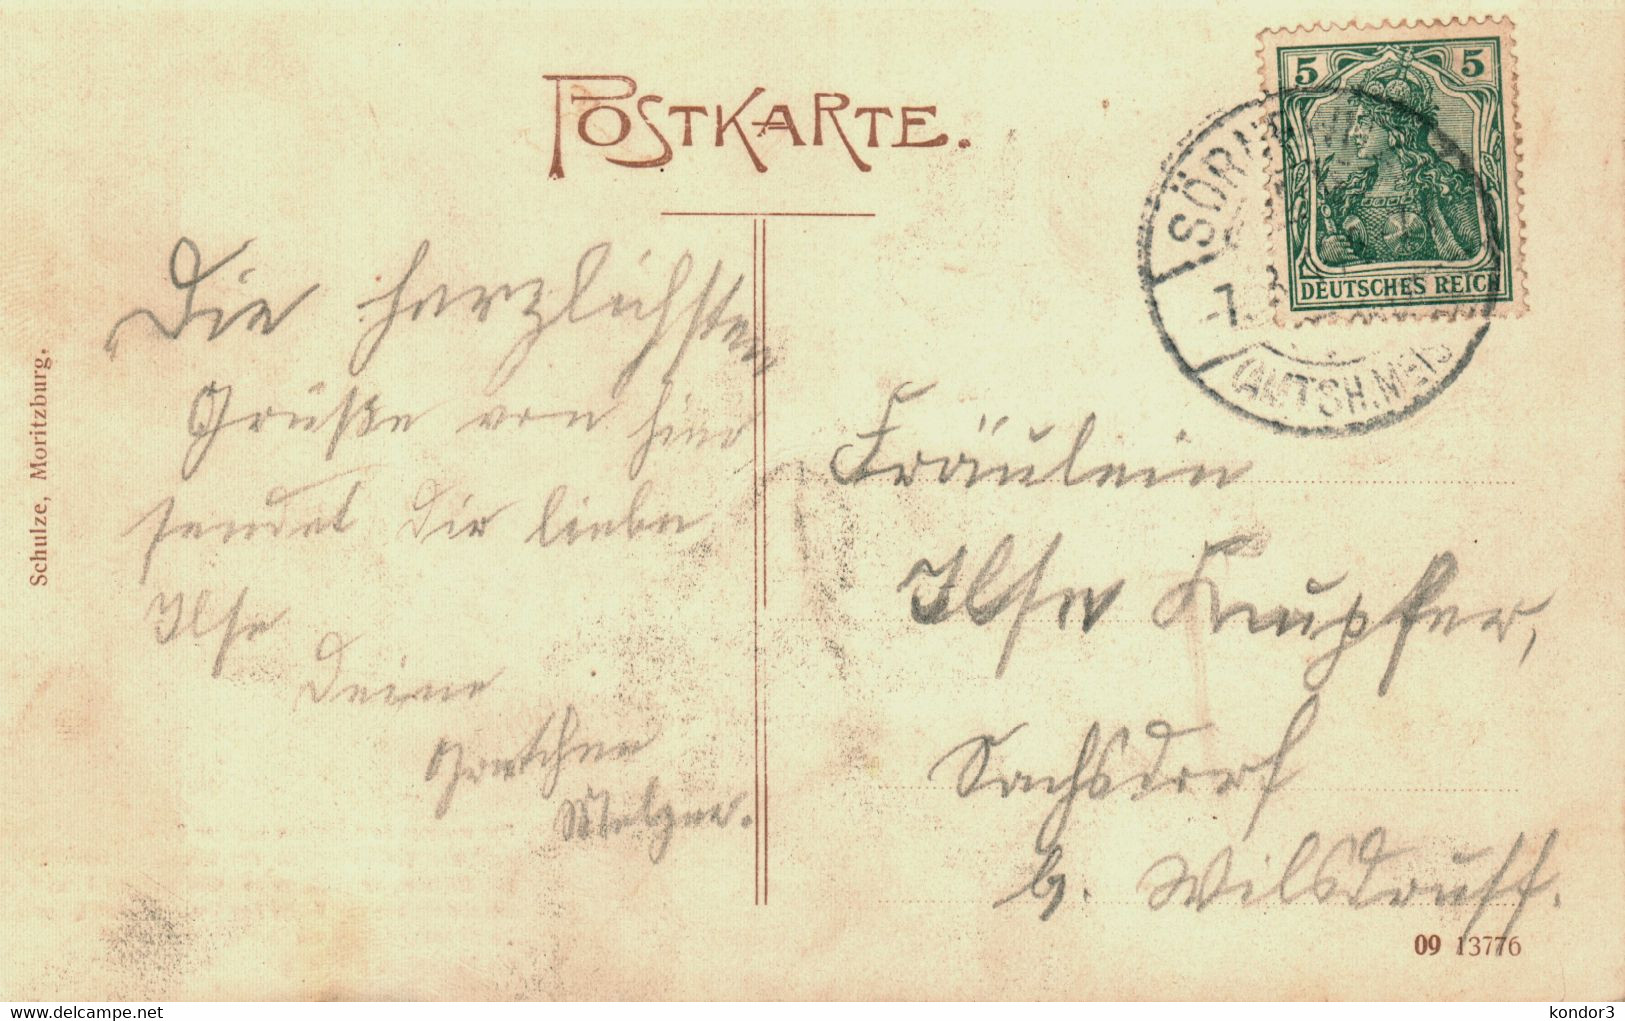 POSTKARTE.
5 5
DEUTSCHES REICH
SÖRNEWITZ
-7. 8
(AMTSH. MEIS
Schulze, Moritzburg.
Die herzlichsten
Grüße von hier
sendet Dir liebe
Ilse
Deine
Gretchen
Melzer.
Fräulein
Ilse Kupfer,
Sachsdorf
b. Wilsdruff.
09 13776
delcampe.net
kondor3